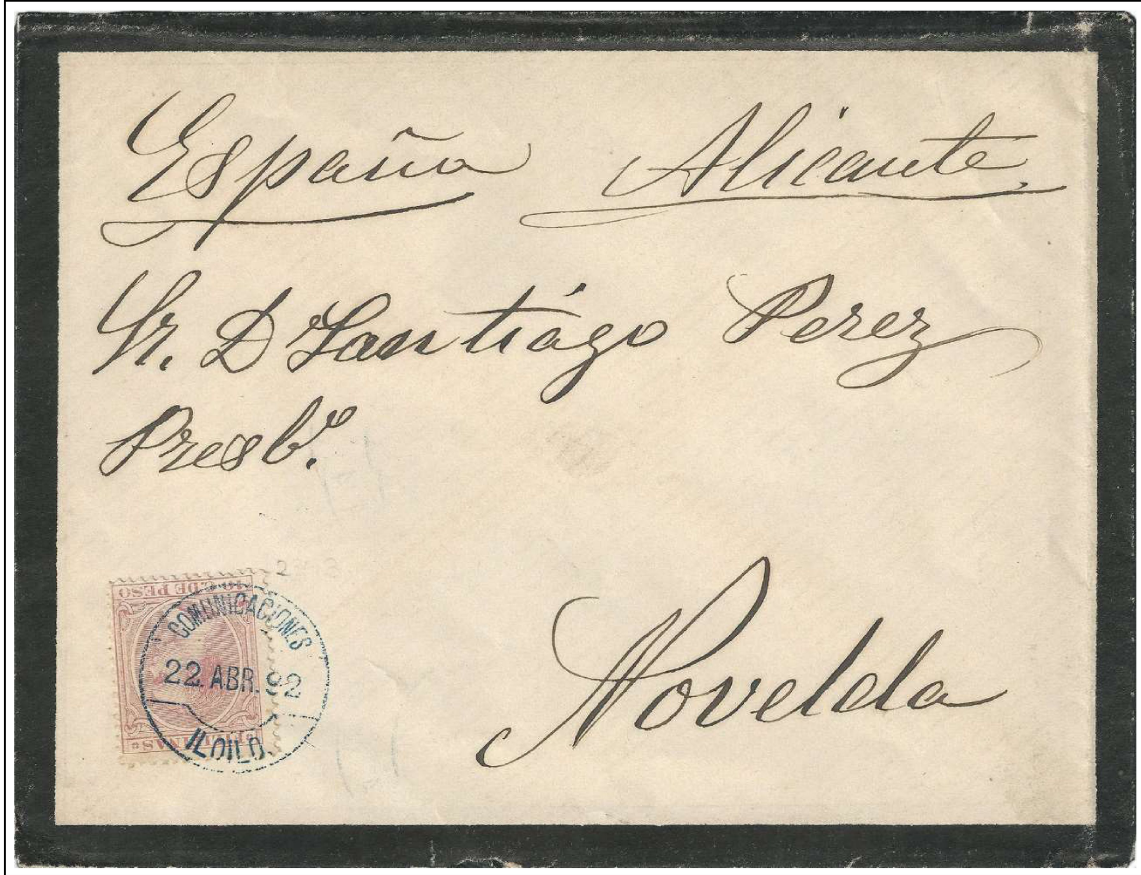 España Alicante
Sr. D Santiágo Perez
Presb.º
Novelda
C. DE PESO
COMUNICACIONES
22 ABR. 92
ILOILO.